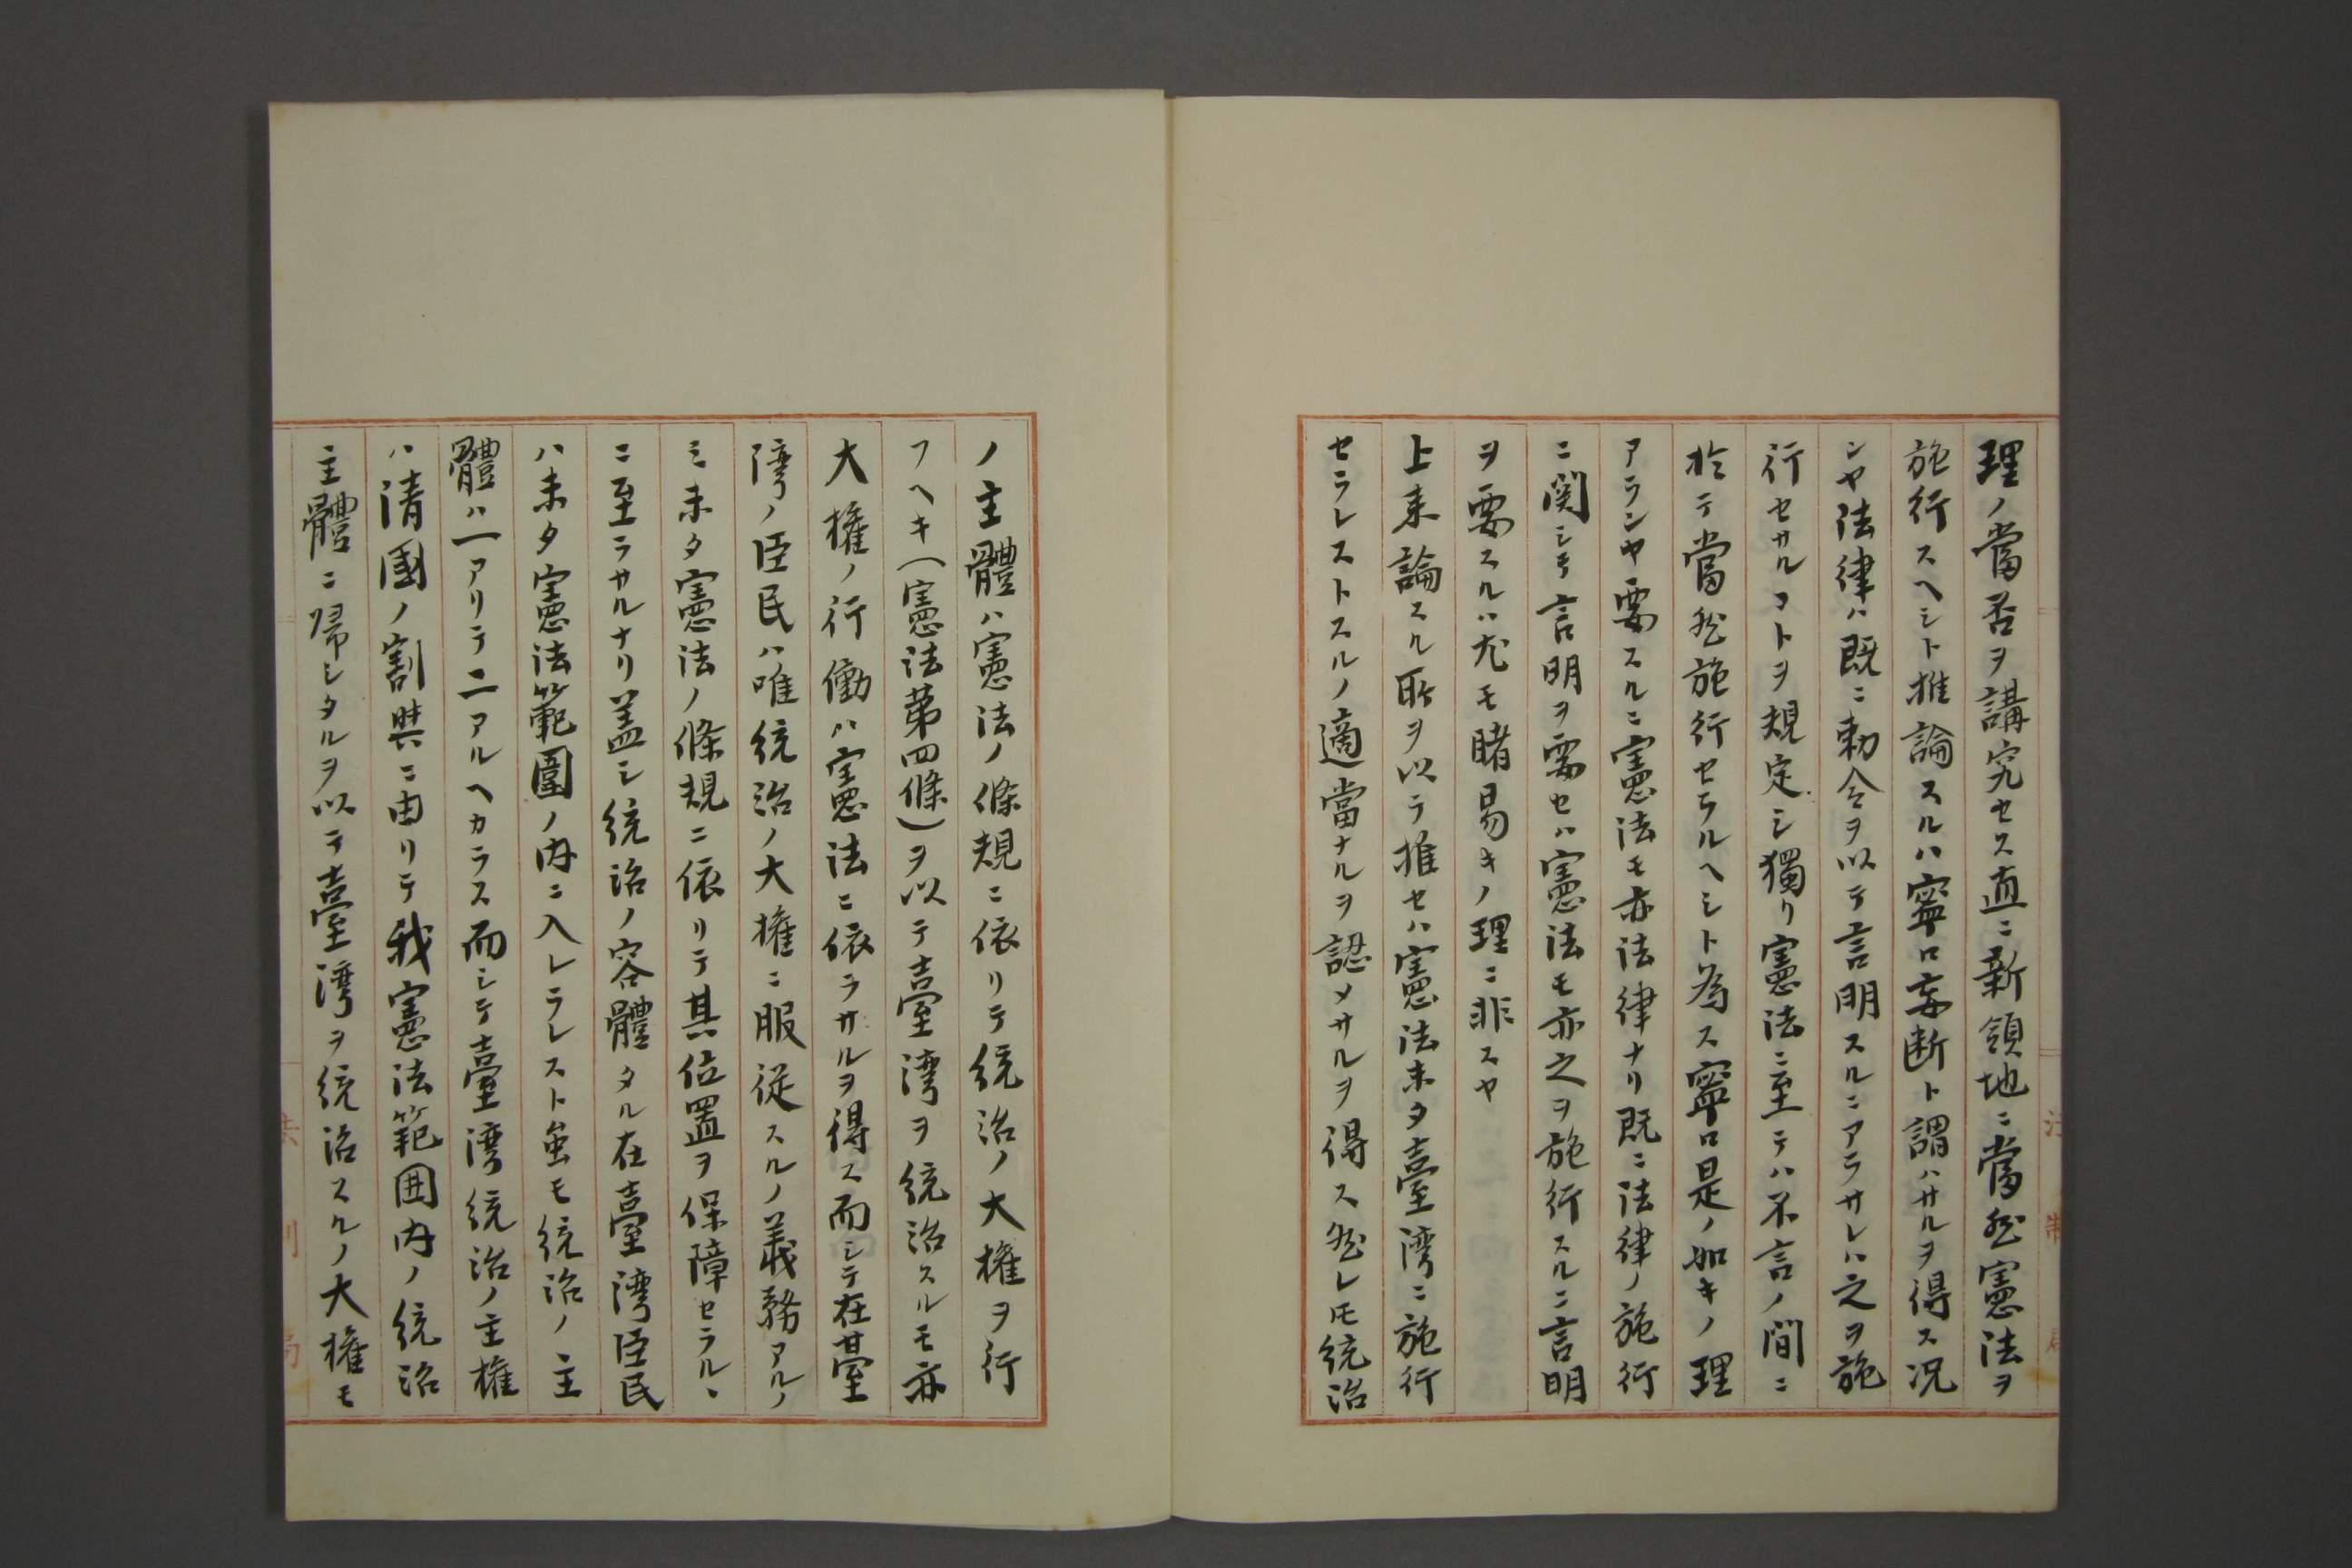 理ノ當否ヲ講究セス直ニ新領地ニ當然憲法ヲ
施行スヘシト推論スルハ寧ロ妄断ト謂ハサルヲ得ス况
ンヤ法律ハ既ニ勅令ヲ以テ言明スルニアラサレハ之ヲ施
行セサルコトヲ規定シ獨リ憲法ニ至テハ不言ノ間ニ
於テ當然施行セラルヘシト為ス寧ロ是ノ如キノ理
アランヤ要スルニ憲法モ亦法律ナリ既ニ法律ノ施行
ニ関シテ言明ヲ要セハ憲法モ亦之ヲ施行スルニ言明
ヲ要スルハ尤モ睹易キノ理ニ非スヤ
上来論スル所ヲ以テ推セハ憲法未タ臺湾ニ施行
セラレストスルノ適當ナルヲ認メサルヲ得ス然レトモ統治
ノ主體ハ憲法ノ條規ニ依リテ統治ノ大權ヲ行
フヘキ(憲法第四條)ヲ以テ臺湾ヲ統治スルモ亦
大權ノ行働ハ憲法ニ依ラサルヲ得ス而シテ在臺
湾ノ臣民ハ唯統治ノ大權ニ服従スルノ義務アルノ
ミ未タ憲法ノ條規ニ依リテ其位置ヲ保障セラルヽ
ニ至ラサルナリ盖シ統治ノ客體タル在臺湾臣民
ハ未タ憲法範圍ノ内ニ入レラレスト虽モ統治ノ主
體ハ一アリテ二アルヘカラス而シテ臺湾統治ノ主權
ハ清國ノ割與ニ由リテ我憲法範囲内ノ統治
主體ニ帰シタルヲ以テ臺湾ヲ統治スルノ大權モ
法制局